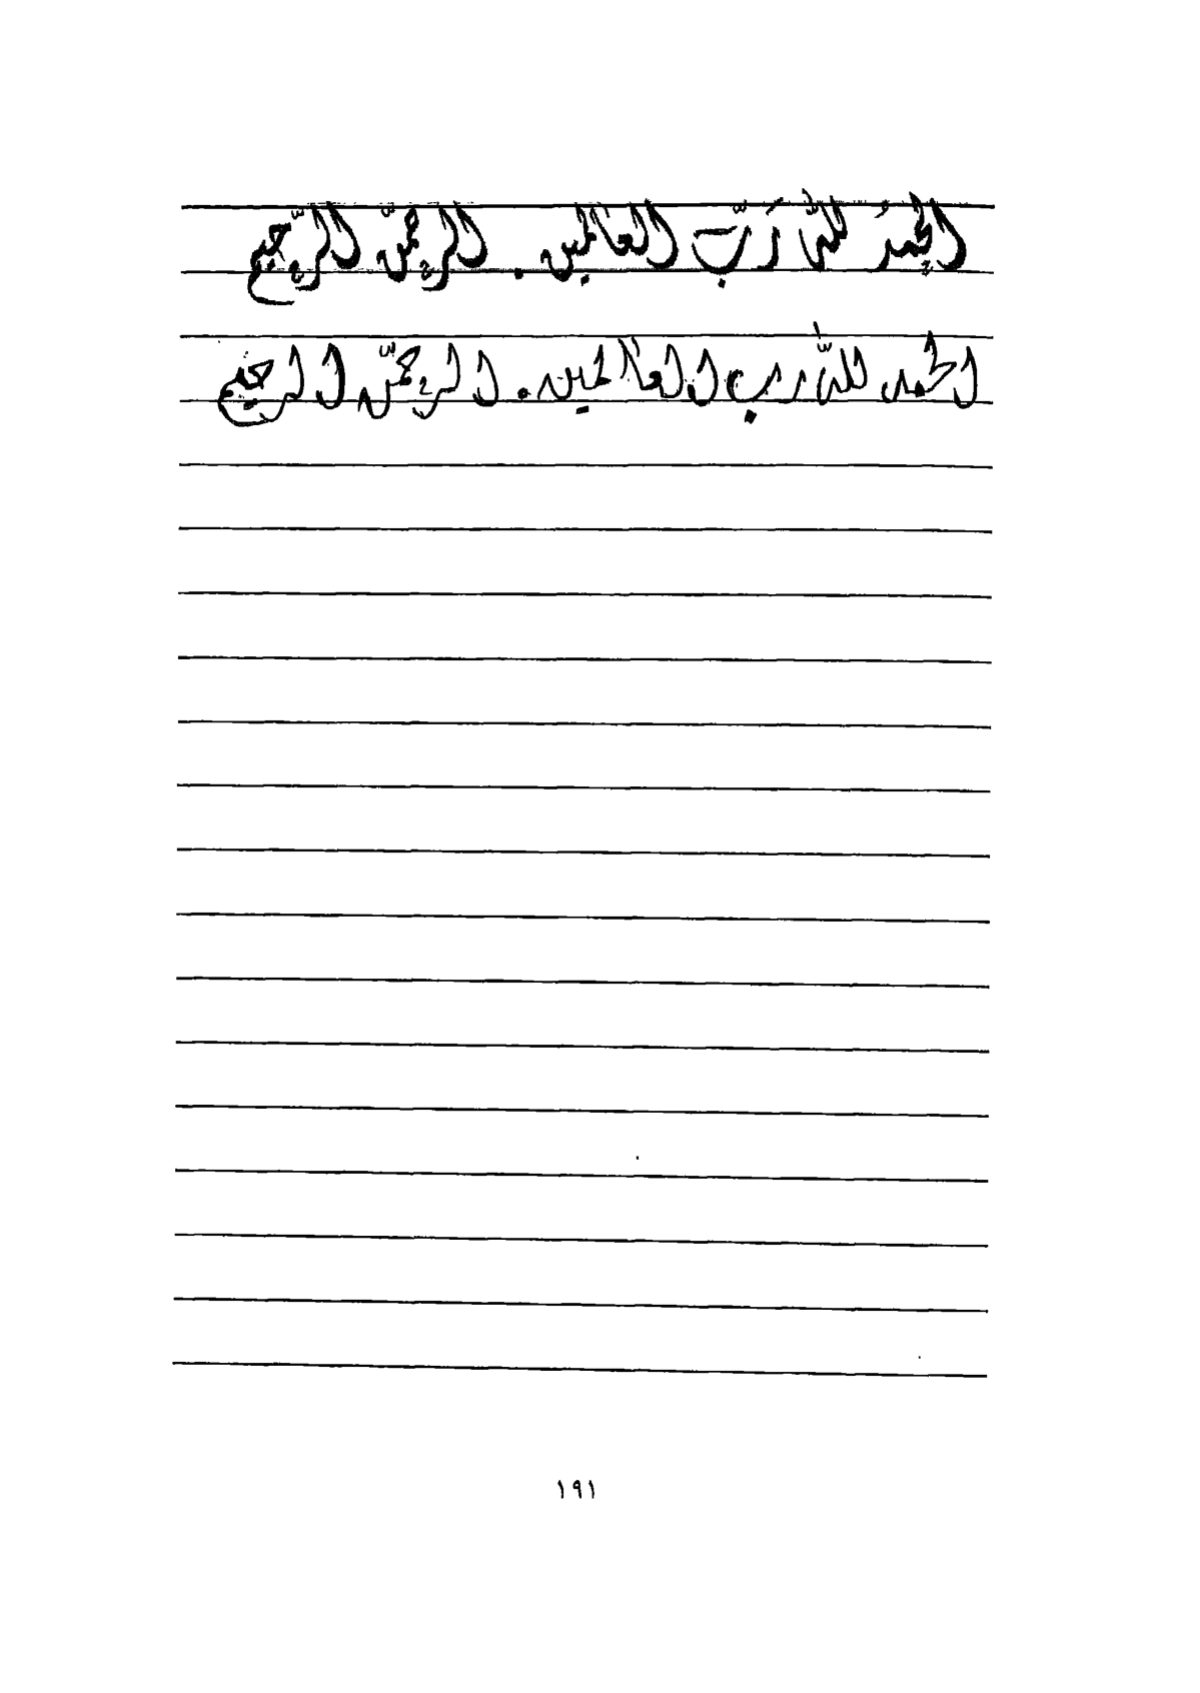 الحمدُ لله رَبّ العالمين . الرحمنّ الرّحيم
الحمد للّه رب العالمين . الرحمنّ الرحيم
١٩١